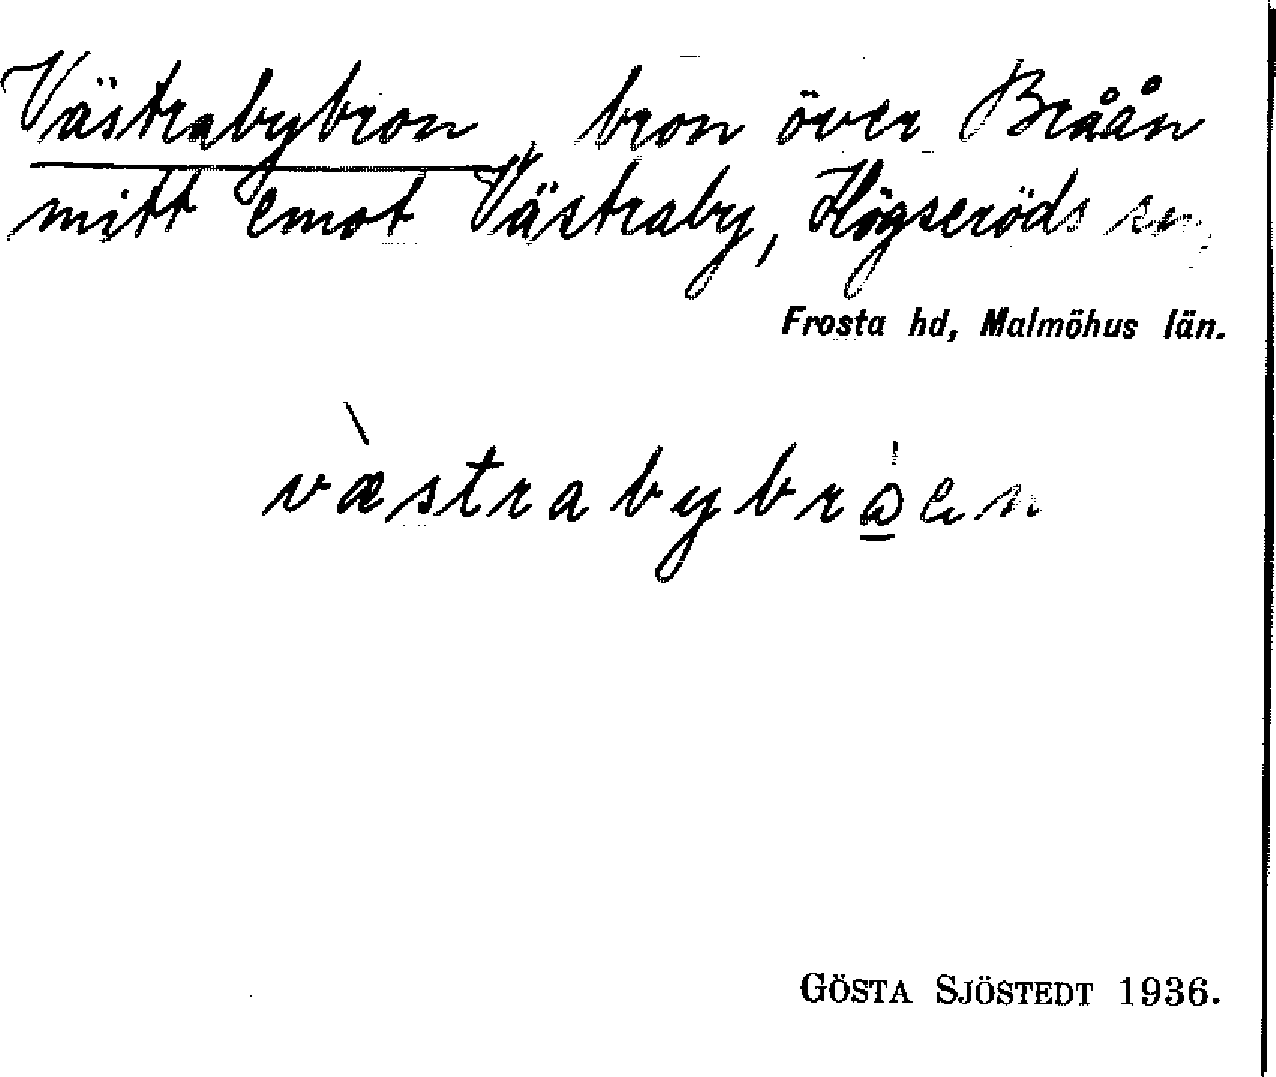 Västrabybron, bron över Bråån
mitt emot Västraby, Högseröds sn,
Frosta hd, Malmöhus län.
væ̀strabybrωen
GÖSTA SJÖSTEDT 1936.